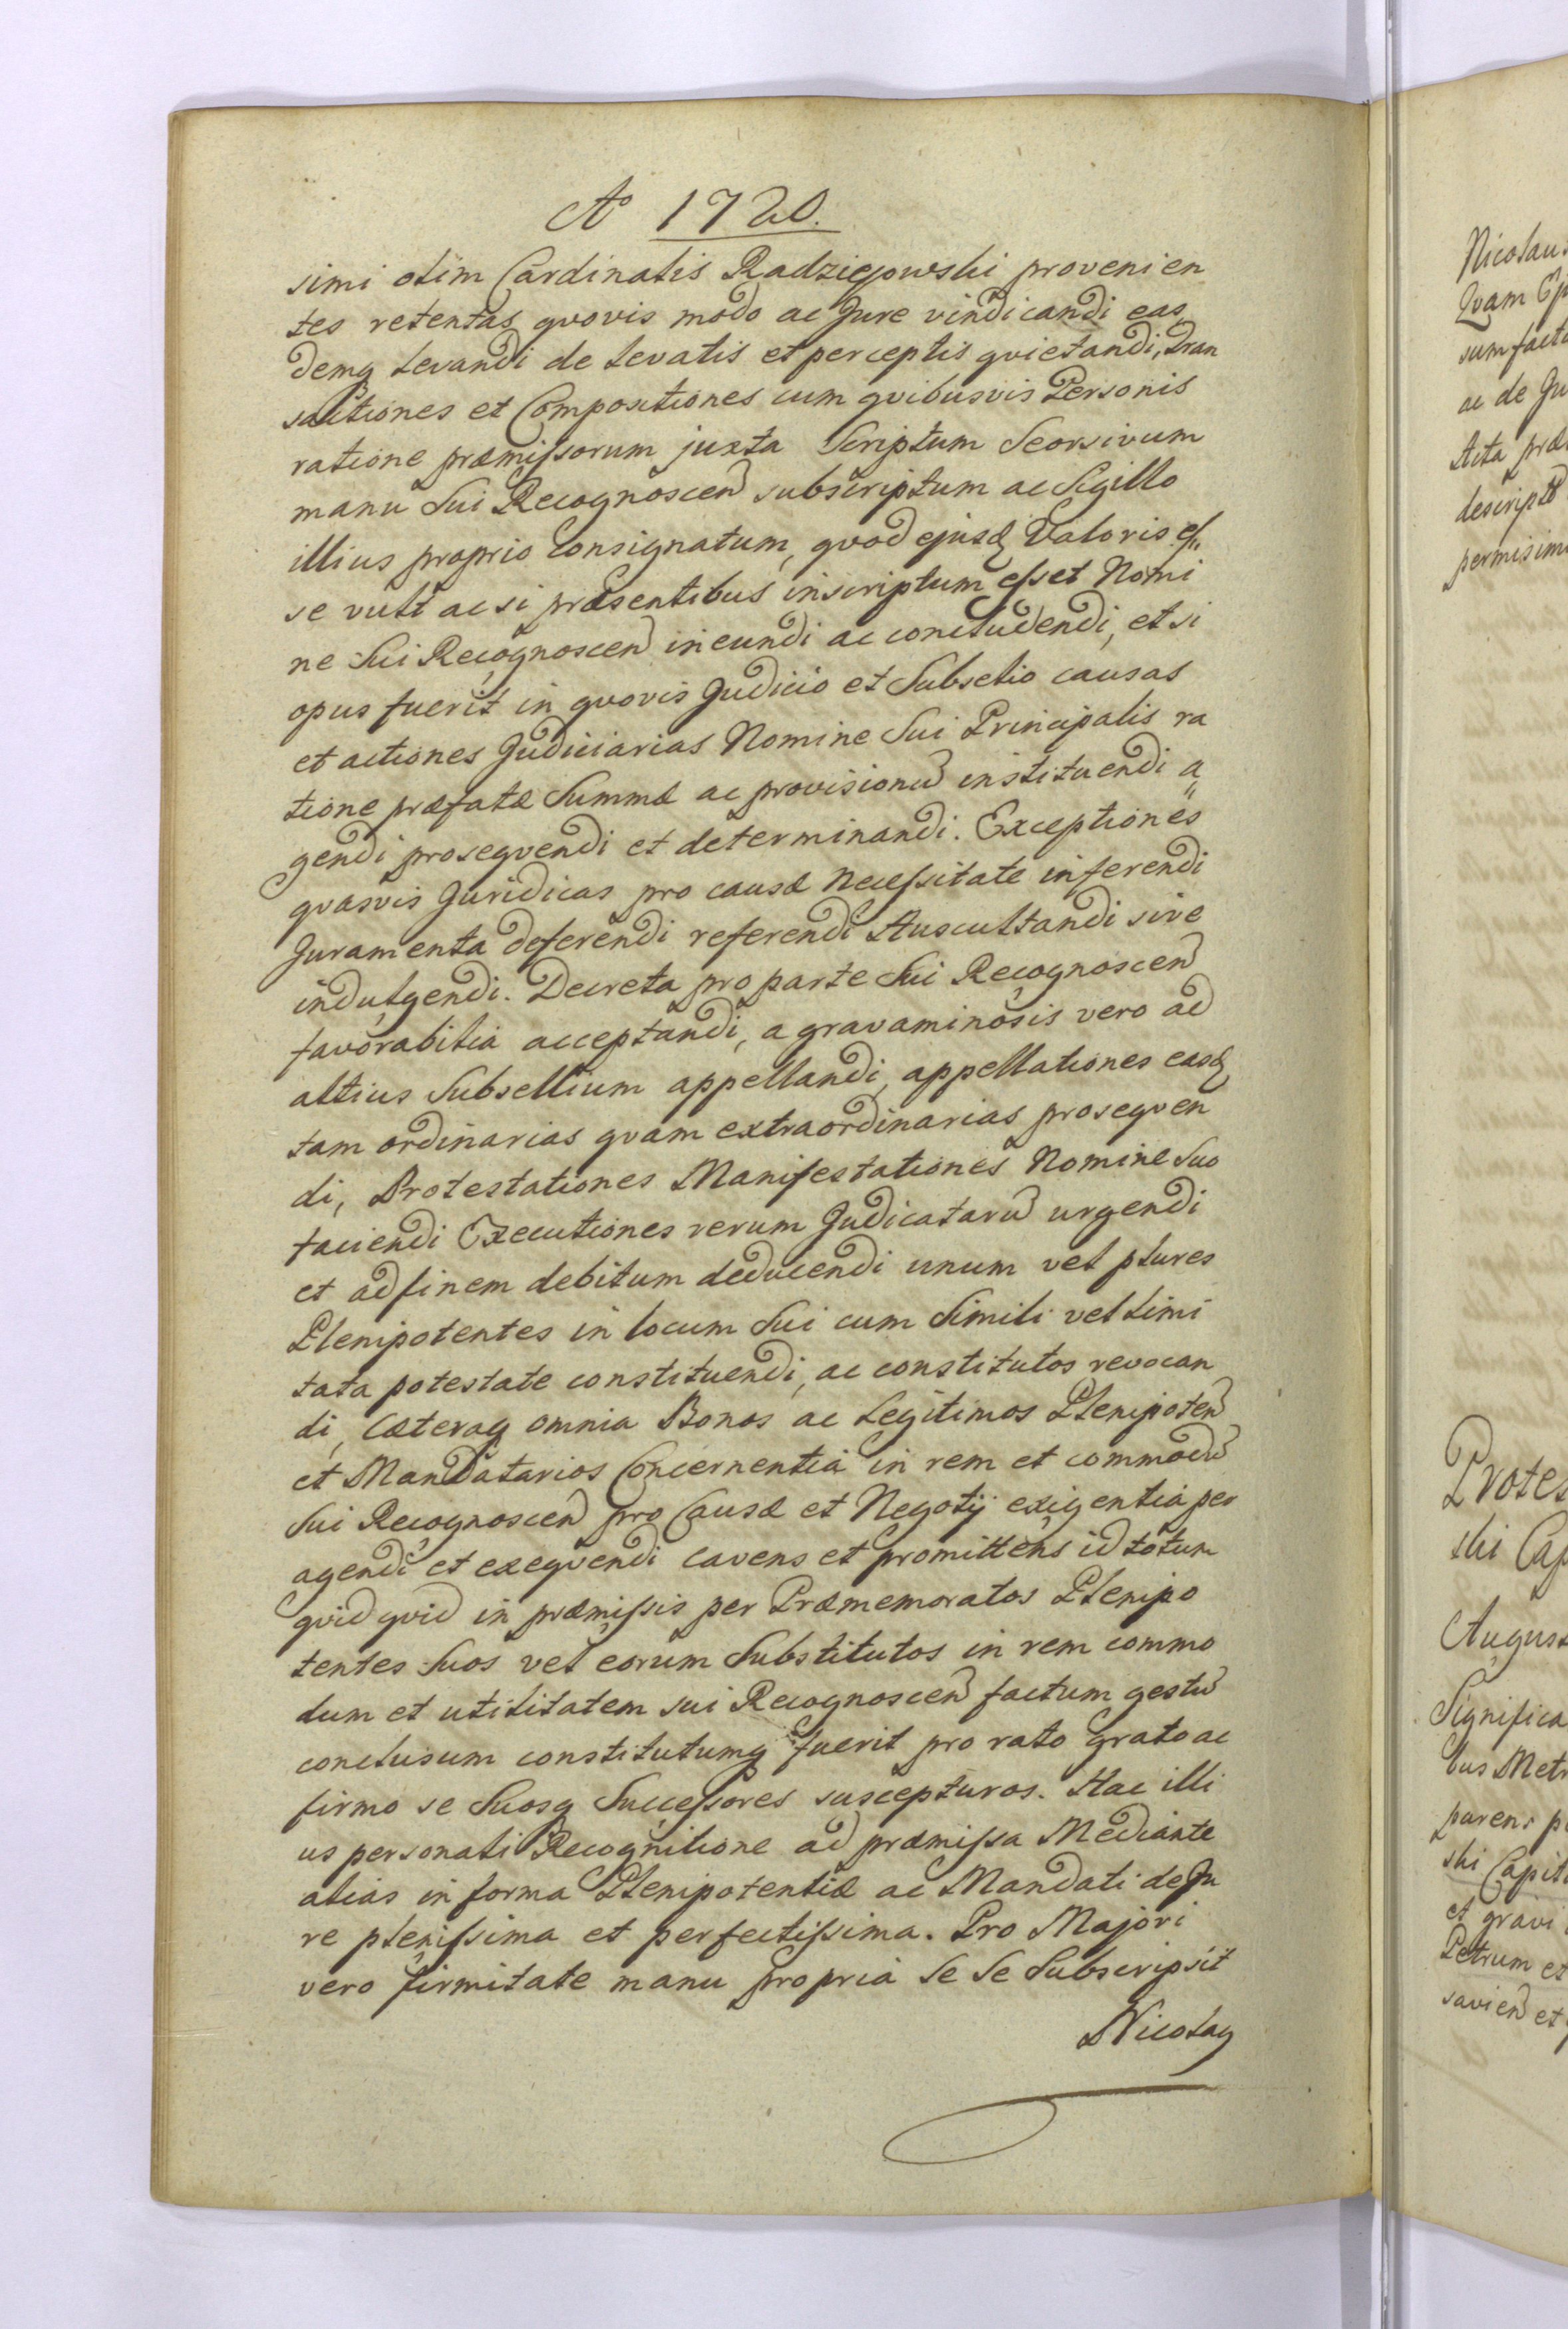 Aº 1720.
simi olim Cardinalis Radziejowski provenien
tes retentas qvovis modo ac Jure vindicandi eas
demq levandi de levatis et perceptis qvietandi, Tran
sactiones et Compositiones cum qvibusvis Personis
ratione præmissorum juxta Scriptum Seorsivum
manu Sui Recognoscen subscriptum ac Sigillo
illius proprio Consignatum, qvod ejusd Valoris es„
se vult ac si præsentibus inscriptum esset Nomi
ne Sui Recognoscen ineundi ac concludendi, et si
opus fuerit in qvovis Judicio et Subselio causas
et actiones Judiciarias Nomine Sui Principalis ra
tione præfatæ Summæ ac provisionū instituendi a„
gendi proseqvendi et determinandi. Exceptiones
qvasvis Juridicas pro causæ Necessitate inferendi
Juramenta deferendi referendi Auscultandi sive
indulgendi. Decreta pro parte Sui Recognoscen
favorabilia acceptandi, a gravaminosis vero ad
altius Subsellium appellandi, appellationes easd
tam ordinarias qvam extraordinarias proseqven
di, Protestationes Manifestationes Nomine Suo
faciendi Executiones rerum Judicatarū urgendi
et ad finem debitum deducendi unum vel plures
Plenipotentes in locum Sui cum Simili vel limi
tata potestate constituendi, ac constitutos revocan
di, Cæteraq omnia Bonos ac Legitimos Plenipoten
et Mandatarios Concernentia in rem et commodū
Sui Recognoscen pro Causæ et Negotij exigentia per
agendi et exeqvendi Cavens et promittens id totum
qvid qvid in præmissis per Præmemoratos Plenipo
tentes Suos vel eorum Substitutos in rem commo
dum et utilitatem sui Recognoscen factum gestū
conclusum constitutumq fuerit pro rato grato ac
firmo se Suosq Successores suscepturos. Hac illi
us personali Recognitione ad præmissa Mediante
alias in forma Plenipotentiæ ac Mandati de Ju
re plenissima et perfectissima. Pro Majori
vero firmitate manu propria Se Se Subscripsit
Nicolaq
Nicolau
Qvam
sum fact
ac de Ju
Acta præ
descripto
permisim
Protes
ski Cap
August
Significa
bus Metr
parens p
ski Capit
et gravi
Petrum et
savien et